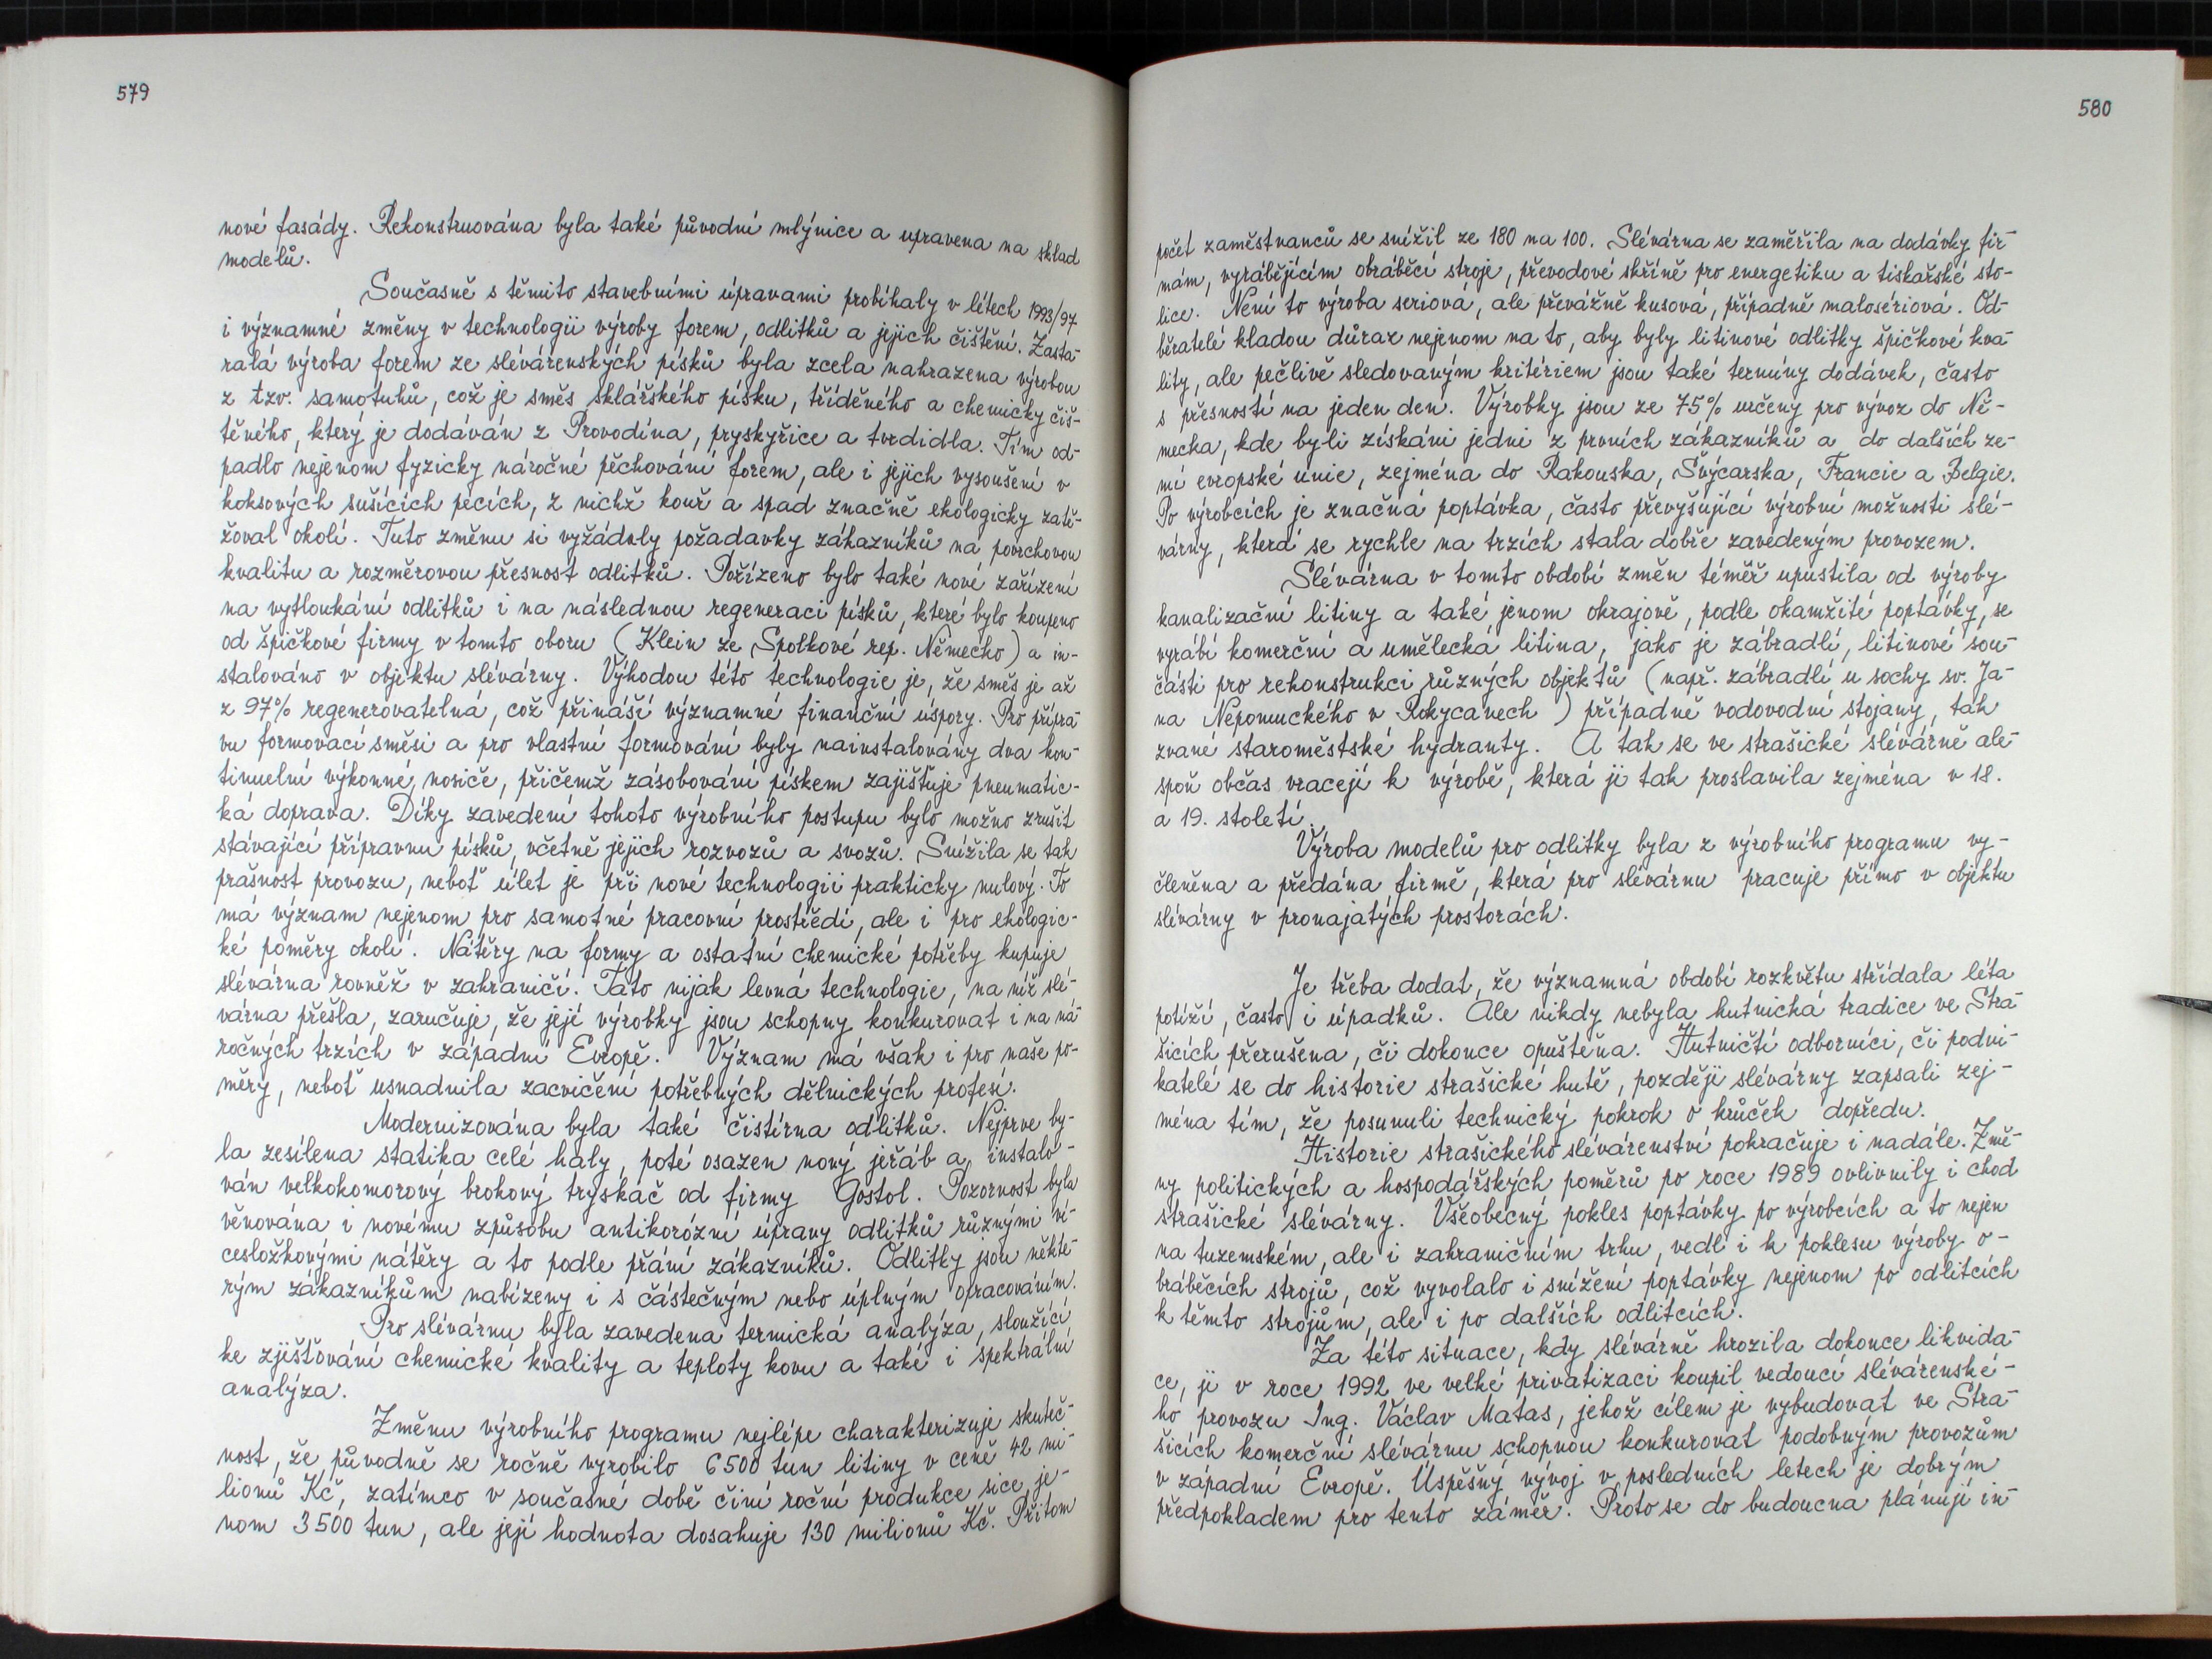 579
nové fasády. Rekonstruována byla také původní mlýnice a upravena na sklad
modelů.
Současně s těmito stavebními úpravami probíhaly v létech 1993/97
i významné změny v technologii výroby forem, odlitků a jejich čištění. Zasta-
ralá výroba forem ze slévárenských písků byla zcela nahrazena výrobou
z tzv. samotuhů, což je směs sklářského písku, tříděného a chemicky čiš-
těného, který je dodáván z Provodína, pryskyřice a tvrdidla. Tím od-
padlo nejenom fyzicky náročné pěchování forem, ale i jejich vysoušení v
koksových sušících pecích, z nichž kouř a spad značně ekologicky zatě-
žoval okolí. Tuto změnu si vyžádaly požadavky zákazníků na povrchovou
kvalitu a rozměrovou přesnost odlitků. Pořízeno bylo také nové zařízení
na vytloukání odlitků i na následnou regeneraci písků, které bylo koupeno
od špičkové firmy v tomto oboru (Klein ze Spolkové rep. Německo) a in-
stalováno v objektu slévárny. Výhodou této technologie je, že směs je až
z 97% regenerovatelná, což přináší významné finanční úspory. Pro přípra-
vu formovací směsi a pro vlastní formování byly nainstalovány dva kon-
tinuelní výkonné nosiče, přičemž zásobování pískem zajišťuje pneumatic-
ká doprava. Díky zavedení tohoto výrobního postupu bylo možno zrušit
stávající přípravnu písků, včetně jejich rozvozů a svozů. Snížila se tak
prašnost provozu, neboť úlet je při nové technologii prakticky nulový. To
má význam nejenom pro samotné pracovní prostředí, ale i pro ekologic-
ké poměry okolí. Nátěry na formy a ostatní chemické potřeby kupuje
slévárna rovněž v zahraničí. Tato nijak levná technologie, na níž slé-
várna přešla, zaručuje, že její výrobky jsou schopny konkurovat i na ná-
ročných trzích v západní Evropě. Význam má však i pro naše po-
měry, neboť usnadnila zacvičení potřebných dělnických profesí.
Modernizována byla také čistírna odlitků. Nejprve by-
la zesílena statika celé haly, poté osazen nový jeřáb a instalo-
ván velkokomorový brokový tryskáč od firmy Gostol. Pozornost byla
věnována i novému způsobu antikorózní úpravy odlitků různými ví-
cesložkovými nátěry a to podle přání zákazníků. Odlitky jsou někte-
rým zákazníkům nabízeny i s částečným nebo úplným opracováním.
Pro slévárnu byla zavedena termická analýza, sloužící
ke zjišťování chemické kvality a teploty kovu a také i spektrální
analýza.
Změnu výrobního programu nejlépe charakterizuje skuteč-
nost, že původně se ročně vyrobilo 6500 tun litiny v ceně 42 mi-
lionů Kč, zatímco v současné době činí roční produkce sice je-
nom 3500 tun, ale její hodnota dosahuje 130 milionů Kč. Přitom
580
počet zaměstnanců se snížil ze 180 na 100. Slévárna se zaměřila na dodávky fir-
mám, vyrábějícím obráběcí stroje, převodové skříně pro energetiku a tiskařské sto-
lice. Není to výroba seriová, ale převážně kusová, případně malosériová. Od-
běratelé kladou důraz nejenom na to, aby byly litinové odlitky špičkové kva-
lity, ale pečlivě sledovaným kritériem jsou také termíny dodávek, často
s přesností na jeden den. Výrobky jsou ze 75% určeny pro vývoz do Ně-
mecka, kde byli získáni jedni z prvních zákazníků a do dalších ze-
mí evropské unie, zejména do Rakouska, Švýcarska, Francie a Belgie.
Po výrobcích je značná poptávka, často převyšující výrobní možnosti slé-
várny, která se rychle na trzích stala dobře zavedeným provozem.
Slévárna v tomto období změn téměř upustila od výroby
kanalizační litiny a také jenom okrajově, podle okamžité poptávky, se
vyrábí komerční a umělecká litina, jako je zábradlí, litinové sou-
části pro rekonstrukci různých objektů (např. zábradlí u sochy sv. Ja-
na Nepomuckého v Rokycanech) případně vodovodní stojany, tak
zvané staroměstské hydranty. A tak se ve strašické slévárně ale-
spoň občas vracejí k výrobě, která ji tak proslavila zejména v 18.
a 19. století.
Výroba modelů pro odlitky byla z výrobního programu vy-
členěna a předána firmě, která pro slévárnu pracuje přímo v objektu
slévárny v pronajatých prostorách.
Je třeba dodat, že významná období rozkvětu střídala léta
potíží, často i úpadků. Ale nikdy nebyla hutnická tradice ve Stra-
šicích přerušena, či dokonce opuštěna. Hutničtí odborníci, či podni-
katelé se do historie strašické hutě, později slévárny zapsali zej-
ména tím, že posunuli technický pokrok o krůček dopředu.
Historie strašického slévárenství pokračuje i nadále. Změ-
ny politických a hospodářských poměrů po roce 1989 ovlivnily i chod
strašické slévárny. Všeobecný pokles poptávky po výrobcích a to nejen
na tuzemském, ale i zahraničním trhu, vedl i k poklesu výroby o-
bráběcích strojů, což vyvolalo i snížení poptávky nejenom po odlitcích
k těmto strojům, ale i po dalších odlitcích.
Za této situace, kdy slévárně hrozila dokonce likvida-
ce, ji v roce 1992 ve velké privatizaci koupil vedoucí slévárenské-
ho provozu Ing. Václav Matas, jehož cílem je vybudovat ve Stra-
šicích komerční slévárnu schopnou konkurovat podobným provozům
v západní Evropě. Úspěšný vývoj v posledních letech je dobrým
předpokladem pro tento záměr. Proto se do budoucna plánují in-